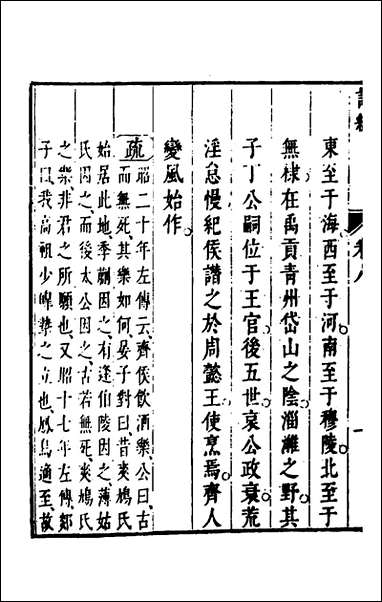 東至于海西至于河南至于穆陵北至于
無棣在禹貢青州岱山之陰濰淄之野其
子丁公嗣位于王官後五世哀公政衰荒
淫怠慢紀侯譖之於周懿王使烹焉齊人
變風始作
疏昭二十年左傳云齊侯飲酒樂公曰古
而無死其樂如何晏子對曰昔爽鳩氏
始居此地季萴因之有逢伯陵因之薄姑
氏因之而後太公因之古若無死爽鳩氏
之樂非君之所願也又昭十七年左傳郯
子曰我高祖少皥摯之立也鳳鳥適至故